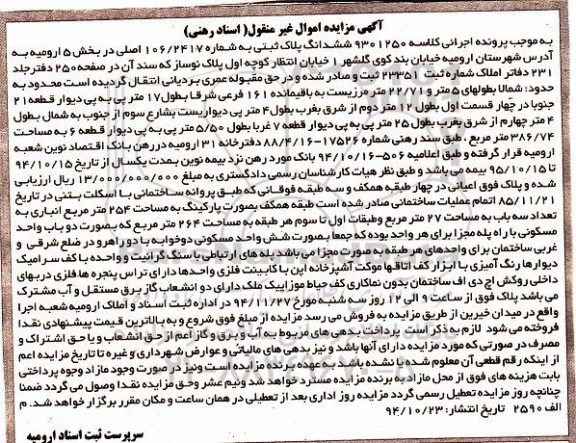 آگهی مزایده اموال غیر منقول( اسناد رهنی)
به موجب پرونده اجرائی کلاسه ۹۳۰۱۲۵۰ ششدانگ پلاک ثبتی به شماره ۱۰۶/۲۴۱۷ اصلی در بخش ۵ ارومیه به
آدرس شهرستان ارومیه خیابان بند کوی گلشهر ۱ خیابان انتظار کوچه اول پلاک نوساز که سند آن در صفحه ۲۵۰ دفتر جلد
۲۳۱ دفاتر املاک شماره ثبت ۲۳۳۵۱ ثبت و صادر شده و در حق مقبوله عمری بردیانی انتقال گردیده است محدود به
حدود: شمالا بطولهای ۵ متر و ۲۲/۷۱ متر مرزیست به باقیمانده ۱۶۱ فرعی شرقا بطول ۱۷ متر پی به پی دیوار قطعه ۲۱
جنوبا در چهار قسمت اول بطول ۱۲ متر دوم از شرق بغرب بطول ۴ متر پی دیواریست بشارع سوم از جنوب به شمال بطول
۴ متر چهارم از شرق بغرب بطول ۲۵ متر پی به پی دیوار قطعه ۷ غربا بطول ۵/۵۰ متر پی به پی دیوار قطعه ۶ به مساحت
۳۸۶/۷۴ متر مربع . طبق سند رهنی شماره ۱۷۵۲۶-۸۸/۴/۱۶ دفترخانه ۳۱ ارومیه در رهن بانک اقتصاد نوین شعبه
ارومیه قرار گرفته و طبق اعلامیه ۵۰۶-۹۴/۱۰/۱۶ بانک مورد رهن نزد بیمه نوین بمدت یکسال از تاریخ ۹۴/۱۰/۱۵
تا ۹۵/۱۰/۱۵ بیمه می باشد و طبق نظر هیات کارشناسان رسمی دادگستری به مبلغ ۱۳/۰۰۰/۰۰۰/۰۰۰ ریال ارزیابی
شده و پلاک فوق اعیانی در چهار طبقه همکف و سه طبقه فوقانی که طبق پروانه ساختمانی با اسکلت بتنی در تاریخ
۸۵/۱۱/۲۱ اتمام عملیات ساختمانی صادر شده است طبقه همکف بصورت پارکینگ به مساحت ۲۵۴ متر مربع انباری به
تعداد سه باب به مساحت ۲۷ متر مربع وطبقات اول تا سوم هر طبقه به مساحت ۲۶۴ متر مربع که بصورت دو باب واحد
مسکونی با راه پله مجزا برای هر واحد بوده که جمعا بصورت شش واحد مسکونی دوخوابه با در راهرو در ضلع شرقی و
غربی ساختمان برای واحدهای هر طبقه به صورت مجزا می باشد پله های ارتباطی با سنگ گرانیت و واحده با کف سرامیک
دیوارها رنگ آمیزی با ابزار کف اتاقها موکت آشپزخانه اپن با کابینت فلزی واحدها دارای تراس پنجره ها فلزی دربهای
داخلی روکش اچ دی اف ساختمان بدون نماکاری کف حیاط موزاییک ملک دارای دو انشعاب گاز برق مستقل و آب مشترک
می باشد پلاک فوق از ساعت ۹ الی ۱۲ روز سه شنبه مورخ ۹۴/۱۱/۲۷ در اداره ثبت اسناد و املاک ارومیه شعبه اجرا
واقع در میدان خیرین از طریق مزایده به فروش می رسد مزایده از مبلغ فوق شروع و به بالاترین قیمت پیشنهادی نقدا
فروخته می شود لازم به ذکر است پرداخت بدهی های مربوط به آب و برق و گاز اعم از حق انشعاب ویا حق اشتراک و
مصرف در صورتی که مورد مزایده دارای آنها باشد و نیز بدهی های مالیاتی و عوارض شهرداری و غیره تا تاریخ مزایده اعم
از اینکه رقم قطعی آن معلوم شده یا نشده باشد به عهده برنده مزایده است ونیز در صورت وجود مازاد وجوه پرداختی
بابت هزینه های فوق از محل مازاد به برنده مزایده مسترد خواهد شد ونیم عشر وحق مزایده نقدا وصول می گردد ضمنا
چنانچه روز مزایده تعطیل رسمی گردد مزایده روز اداری بعد از تعطیلی در همان ساعت و مکان مقرر برگزار خواهد شد. م
الف ۲۵۹۰ تاریخ انتشار: ۹۴/۱۰/۲۳
سرپرست ثبت اسناد ارومیه